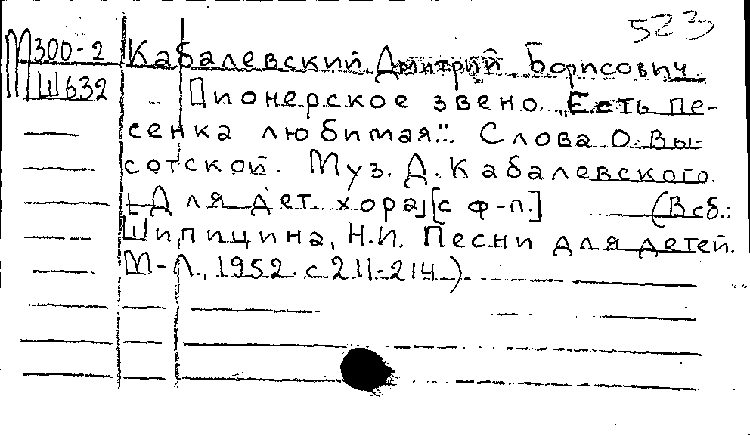 523
М300-2 Кабалевский Дмитрий Борисович.
Ш632 Пионерское звено. „Есть пе-
сенка любимая..." Слова О. Вы-
сотской. Муз. Д. Кабалевского.
[Для дет. хора] [с ф-п.] (В сб.:
Шипицина, Н.И. Песни для детей.
М-Л., 1952. с 211-214).